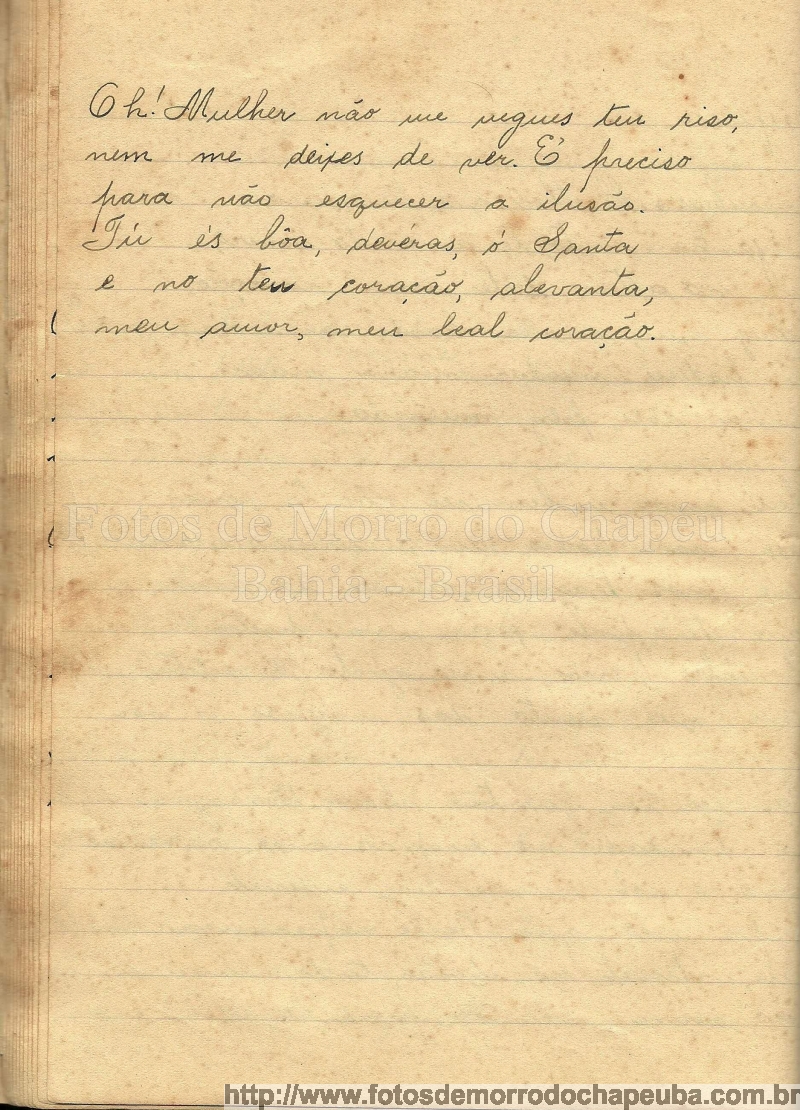 Oh! Mulher não me negues teu riso,
nem me deixes de ver. É preciso
para não esquecer a ilusão.
Tú és bôa, devéras, ó Santa
e no teu coração, alevanta,
meu amor, meu leal coração.
Fotos de Morro do Chapéu
Bahia - Brasil
http://www.fotosdemorrodochapeuba.com.br